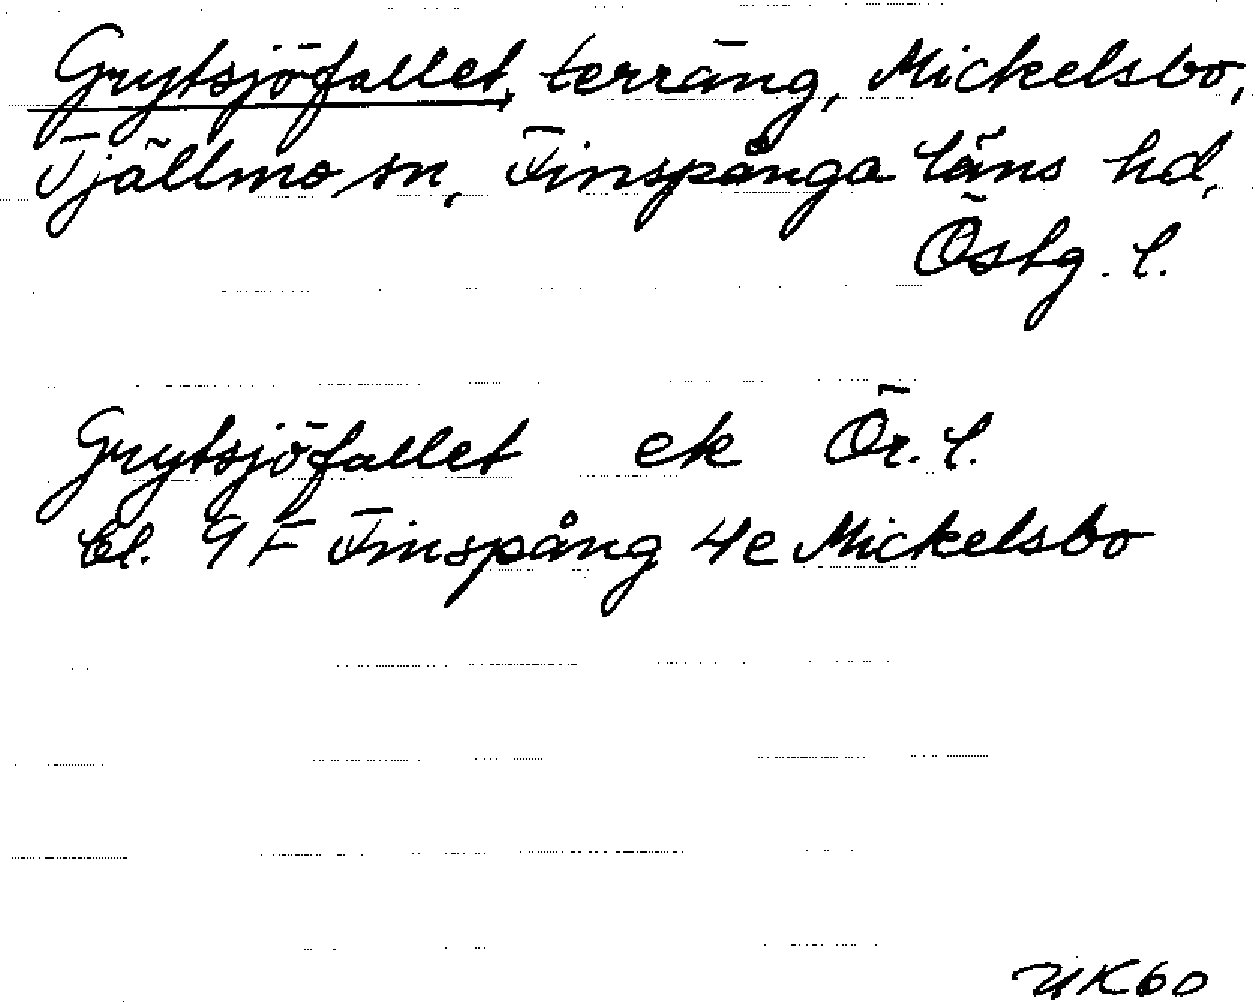 Grytsjöfallet, terräng, Mickelsbo,
Tjällmo sn, Finspånga läns hd,
Östg. l.
Grytsjöfallet ek Ör. l.
bl. 9 F Finspång 4e Mickelsbo
UK60